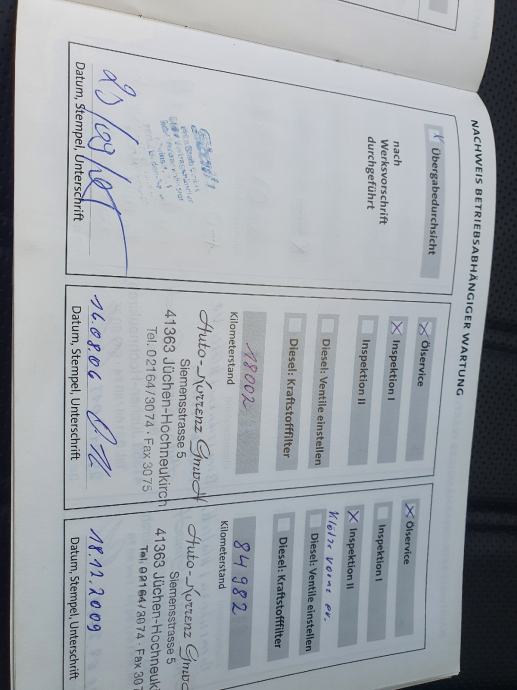 NACHWEIS BETRIEBSABHÄNGIGER WARTUNG
X Übergabedurchsicht
nach
Werksvorschrift
durchgeführt
Datum, Stempel, Unterschrift
X Ölservice
X Inspektion I
Inspektion II
Diesel: Ventile einstellen
Diesel: Kraftstofffilter
18002
Kilometerstand
Auto-Kurrenz GmbH
Siemensstrasse 5
41363 Jüchen-Hochneukirch
Tel. 02164/3074 · Fax 3075
16.08.06
Datum, Stempel, Unterschrift
X Ölservice
Inspektion I
X Inspektion II
Klötze vorne er.
Diesel: Ventile einstellen
Diesel: Kraftstofffilter
84982
Kilometerstand
Auto-Kurrenz Gmb
Siemensstrasse 5
41363 Jüchen-Hochneuk
Tel. 02164/3074 · Fax 307
18.12.2009
Datum, Stempel, Unterschrift